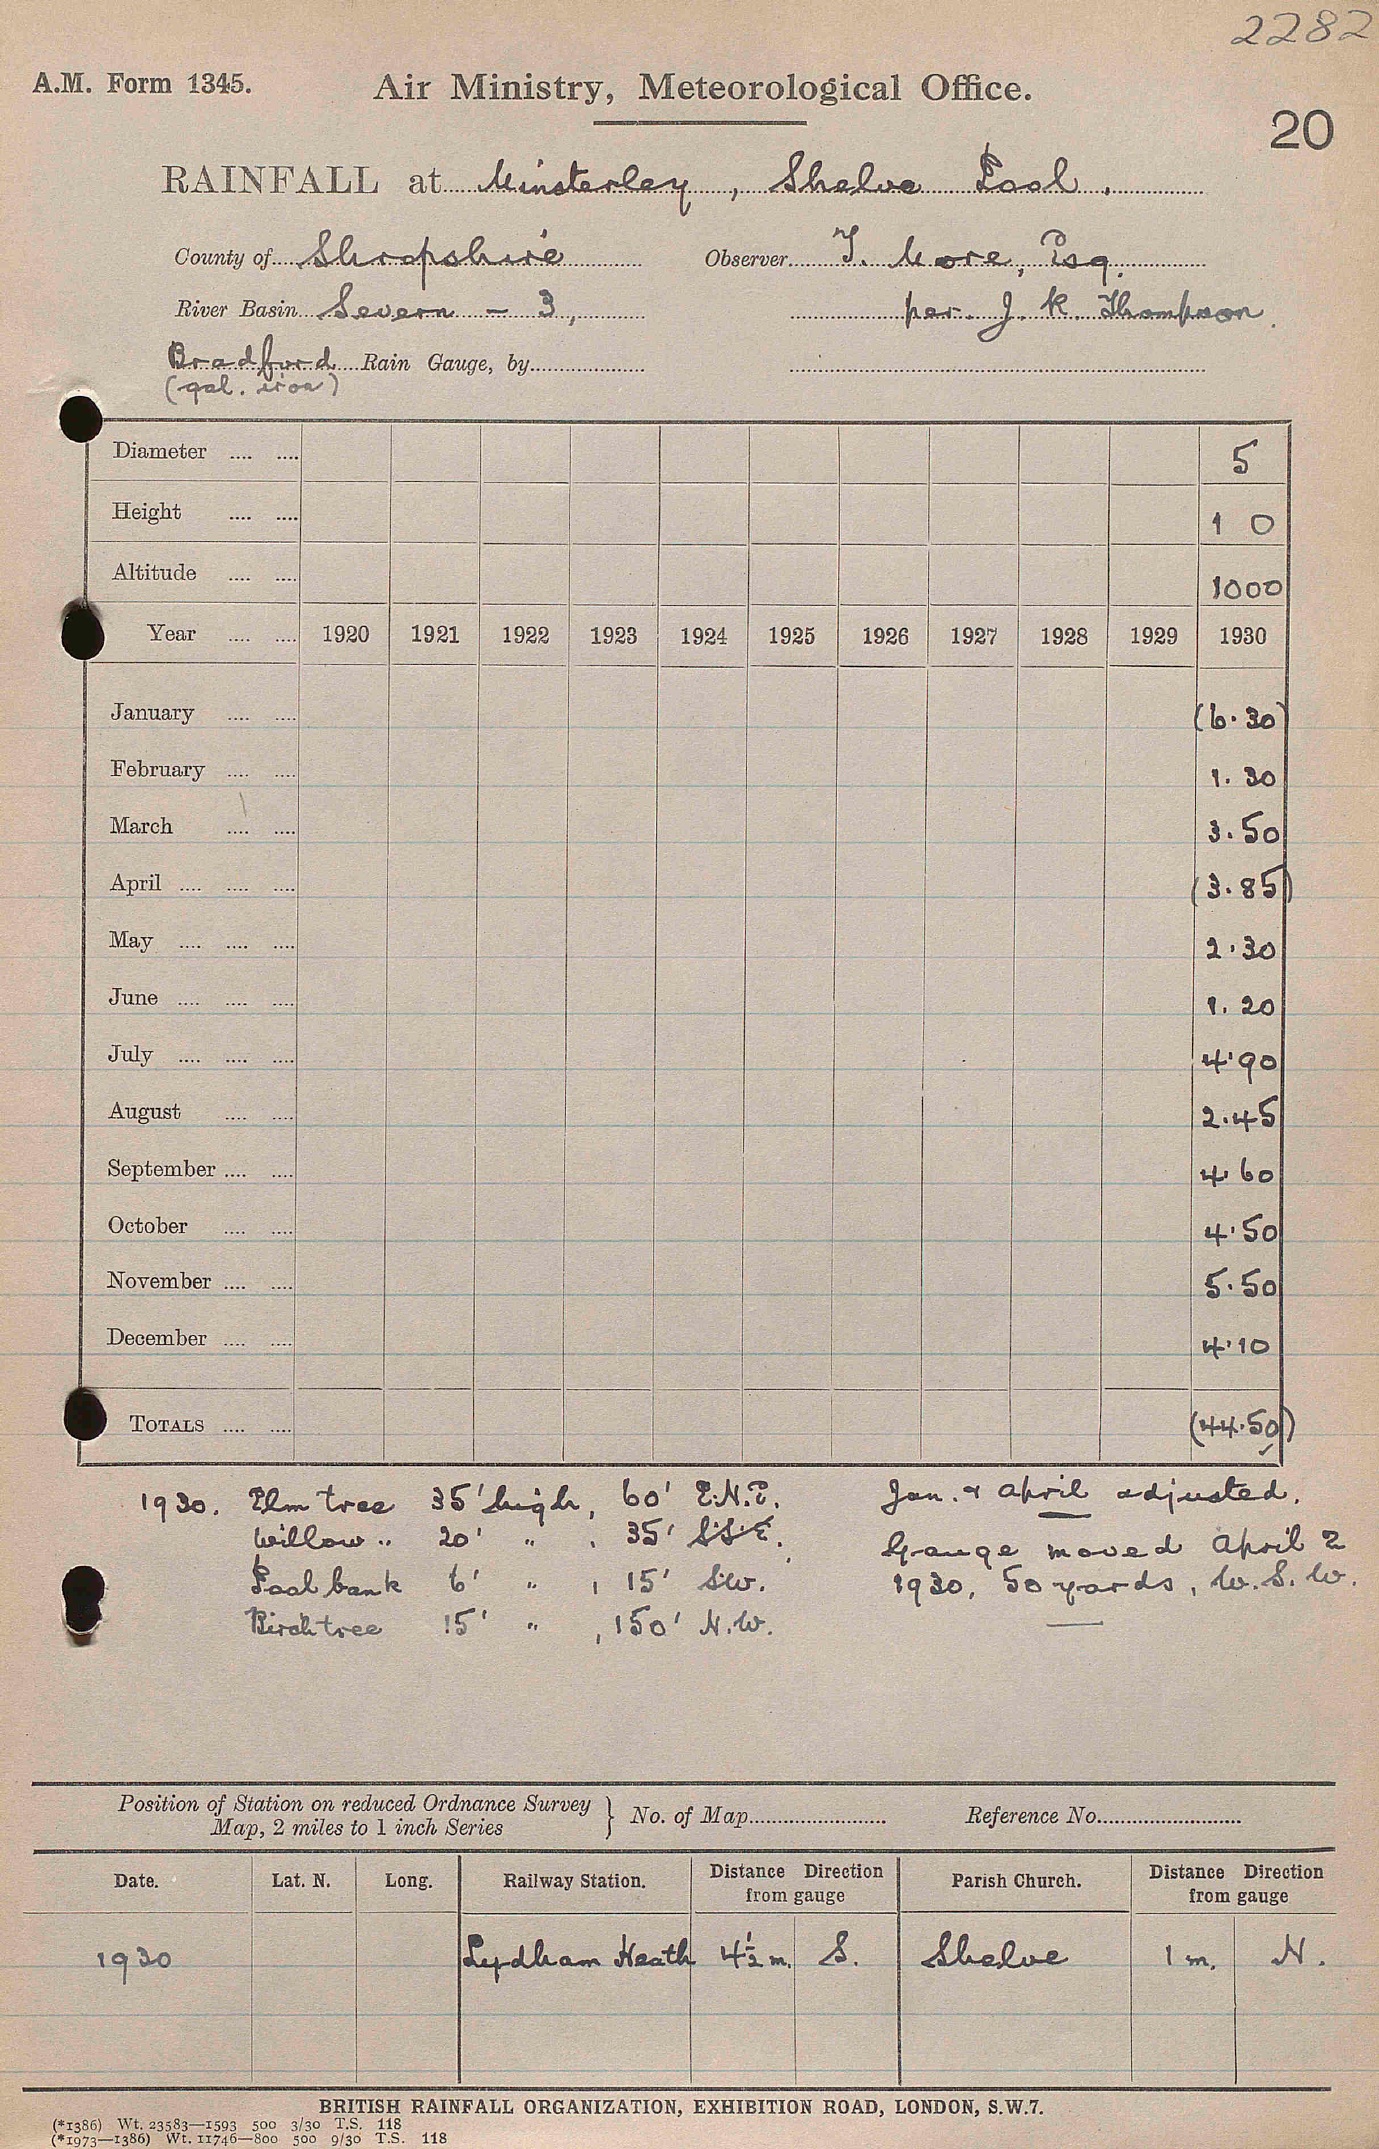 2282
A.M. Form 1345. Air Ministry, Meteorological Office.
20
RAINFALL at Minsterley, Shelve Pool.
County of Shropshire Observer T. More, Esq.
River Basin Severn - 3, per. J. K Thompson.
Bradford Rain Gauge, by
(gal. iron)
Diameter .... .... 5
Height .... .... 1 0
Altitude .... .... 1000
Year .... .... 1920 1921 1922 1923 1924 1925 1926 1927 1928 1929 1930
January .... .... (6.30)
February .... .... 1.30
March .... .... 3.50
April .... .... .... (3.85)
May .... .... .... 2.30
June .... .... .... 1.20
July .... .... .... 4.90
August .... .... 2.45
September .... .... 4.60
October .... .... 4.50
November .... .... 5.50
December .... .... 4.10
TOTALS .... .... (44.50)
1930. Elm tree 35' high, 60' E.N.E. Jan. & April adjusted.
Willow " 20' " , 35' S.S.E. Gauge moved April 2
Pool bank 6' " , 15' S.W. 1930, 50 yards, W.S.W.
Birch tree 15' " , 150' N.W.
Position of Station on reduced Ordnance Survey
Map, 2 miles to 1 inch Series } No. of Map Reference No.
Date. Lat. N. Long. Railway Station. Distance Direction from gauge Parish Church. Distance Direction from gauge
1930 Lydham Heath 4½ m. S. Shelve 1 m. N.
BRITISH RAINFALL ORGANIZATION, EXHIBITION ROAD, LONDON, S.W.7.
(*1386) Wt. 23583—1593 500 3/30 T.S. 118
(*1973—1386) Wt. 11746—800 500 9/30 T.S. 118